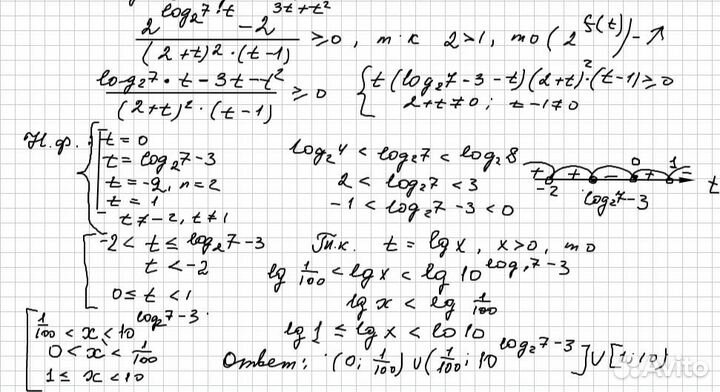 2^{log₂7·t} - 2^{3t+t²} / (2+t)²·(t-1) ≥ 0, т.к 2>1, то (2^{f(t)}) - ↗
log₂7·t - 3t - t² / (2+t)²·(t-1) ≥ 0 { t(log₂7-3-t)(2+t)²·(t-1) ≥ 0
2+t≠0; t-1≠0
Н.ф.: { [ t=0
t=log₂7-3
t=-2, n=2
t=1
t≠-2, t≠1
log₂4 < log₂7 < log₂8
2 < log₂7 < 3
-1 < log₂7-3 < 0
+ + - 0 + 1 -
-2 log₂7-3 t
[ -2 < t ≤ log₂7-3
t < -2
0 ≤ t < 1
Т.к. t = lg x, x>0, то
lg 1/100 < lg x < lg 10^{log₂7-3}
lg x < lg 1/100
lg 1 ≤ lg x < lg 10
[ 1/100 < x < 10^{log₂7-3}
0 < x < 1/100
1 ≤ x < 10
Ответ: (0; 1/100) ∪ (1/100; 10^{log₂7-3}] ∪ [1; 10)
Avito